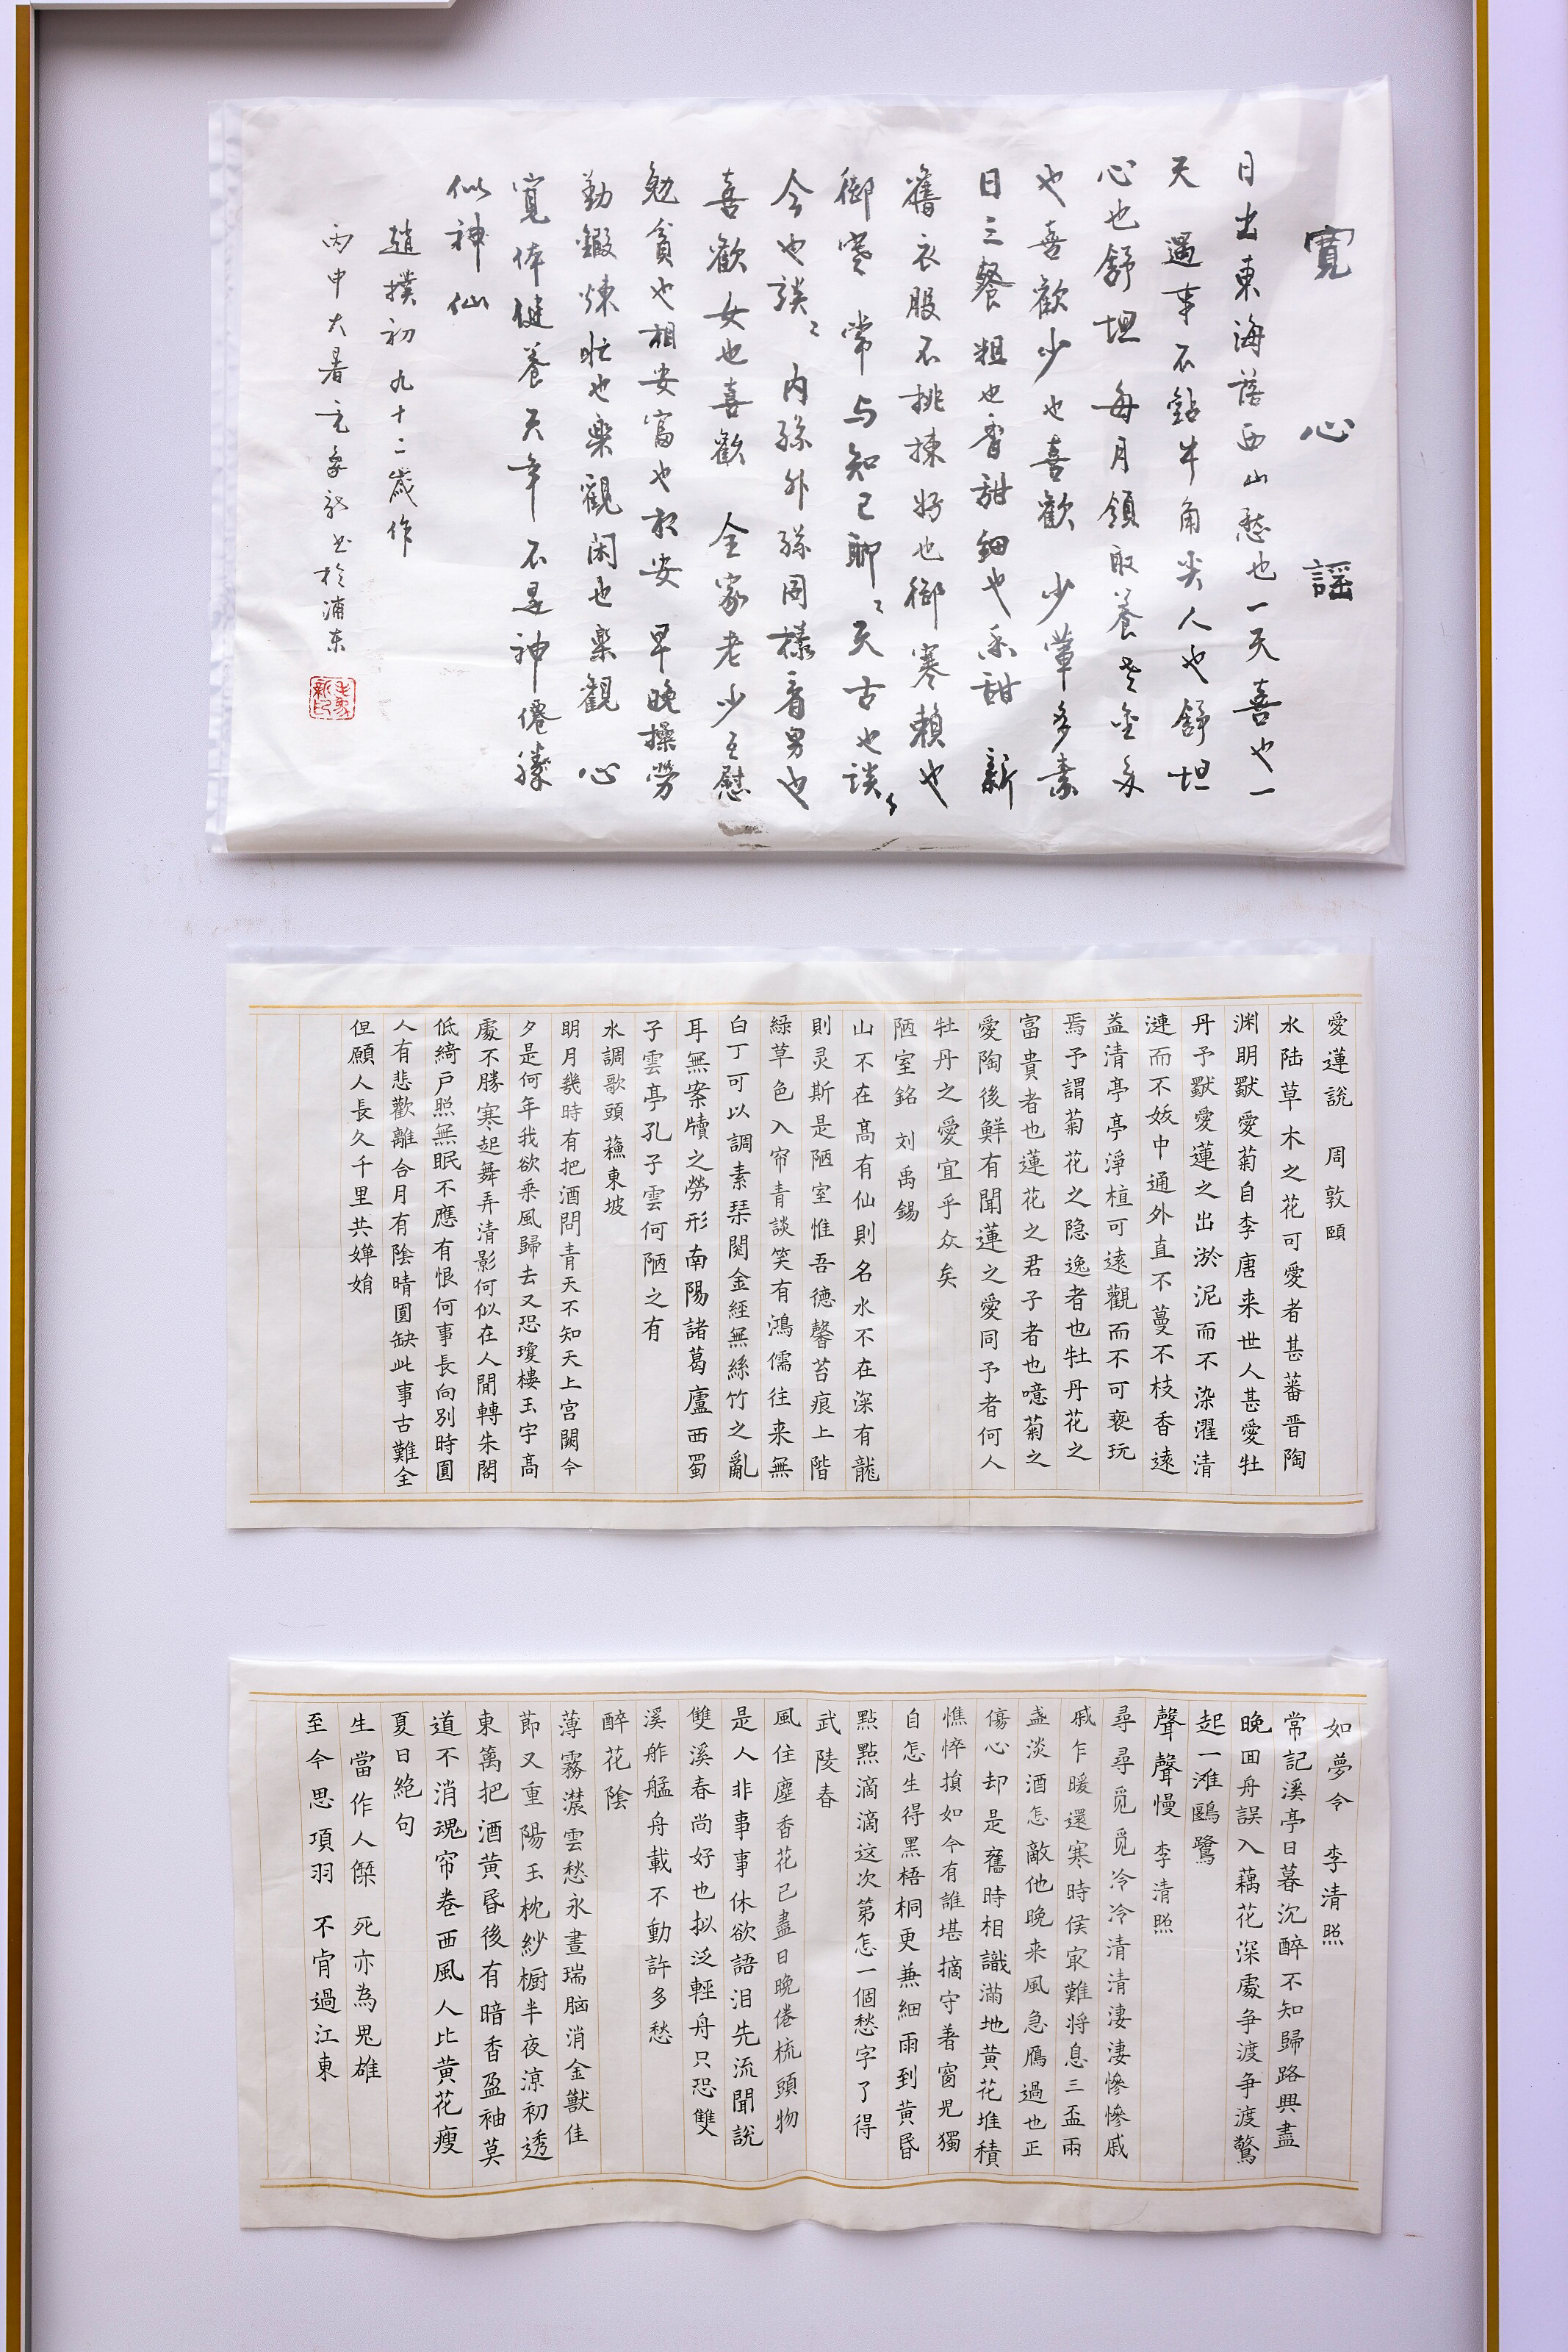 寬心謠
日出東海落西山愁也一天喜也一
天 遇事不鉆牛角尖人也舒坦
心也舒坦 每月領取養老金多
也喜歡少也喜歡 少葷多素
日三餐粗也香甜細也香甜 新
舊衣服不挑揀好也御寒賴也
御寒 常与知已聊〻天古也談〻
今也談〻 內孫外孫同樣看男也
喜歡女也喜歡 全家老少互慰
勉貧也相安富也相安 早晚操勞
勤鍛煉忙也樂觀閑也樂觀 心
寬体健養天年 不是神僊勝
似神仙
趙撲初九十二歲作
丙申大暑毛家新书於浦东
愛蓮說 周敦頤
水陆草木之花可愛者甚蕃晋陶
渊明獸愛菊自李唐来世人甚愛牡
丹予獸愛蓮之出淤泥而不染濯清
漣而不妖中通外直不蔓不枝香遠
益清亭亭淨植可遠觀而不可亵玩
焉予謂菊花之隐逸者也牡丹花之
富貴者也蓮花之君子者也噫菊之
愛陶後鮮有聞蓮之愛同予者何人
牡丹之愛宜乎众矣
陋室銘 刘禹錫
山不在高有仙則名水不在深有龍
則灵斯是陋室惟吾德馨苔痕上階
綠草色入帘青談笑有鴻儒往来無
白丁可以調素琹閱金經無絲竹之亂
耳無案牘之勞形南陽諸葛廬西蜀
子雲亭孔子雲何陋之有
水調歌頭 蘇東坡
明月幾時有把酒問青天不知天上宫闕今
夕是何年我欲乘風歸去又恐瓊樓玉宇高
處不勝寒起舞弄清影何似在人間轉朱閣
低綺户照無眠不應有恨何事長向别時圓
人有悲歡離合月有陰晴圓缺此事古難全
但願人長久千里共嬋娟
如夢令 李清照
常記溪亭日暮沉醉不知歸路興盡
晚囬舟誤入藕花深處争渡争渡驚
起一滩鷗鹭
聲聲慢 李清照
尋尋觅觅冷冷清清淒淒慘慘戚
戚乍暖還寒時侯㝡難将息三盃兩
盏淡酒怎敵他晚来風急鴈過也正
傷心却是舊時相識滿地黄花堆積
憔悴損如今有誰堪摘守着窗児獨
自怎生得黑梧桐更兼細雨到黄昏
點點滴滴这次第怎一個愁字了得
武陵春
風住塵香花已盡日晚倦梳頭物
是人非事事休欲語泪先流聞説
雙溪春尚好也拟泛輕舟只恐雙
溪舴艋舟載不動許多愁
醉花陰
薄霧濃雲愁永晝瑞脑消金獸佳
節又重陽玉枕紗橱半夜凉初透
東篱把酒黄昏後有暗香盈袖莫
道不消魂帘卷西風人比黄花瘦
夏日絕句
生當作人傑 死亦為鬼雄
至今思項羽 不肯過江東